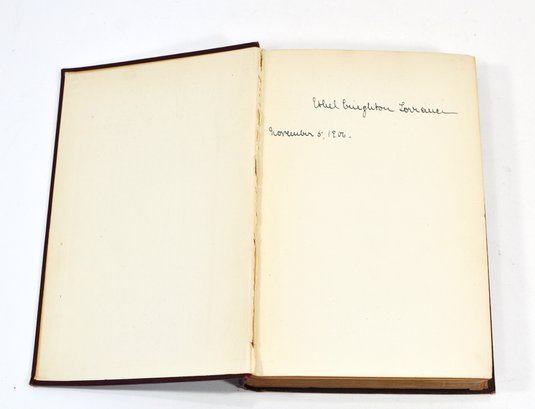 Ethel Creighton Torrance
November 5, 1900.